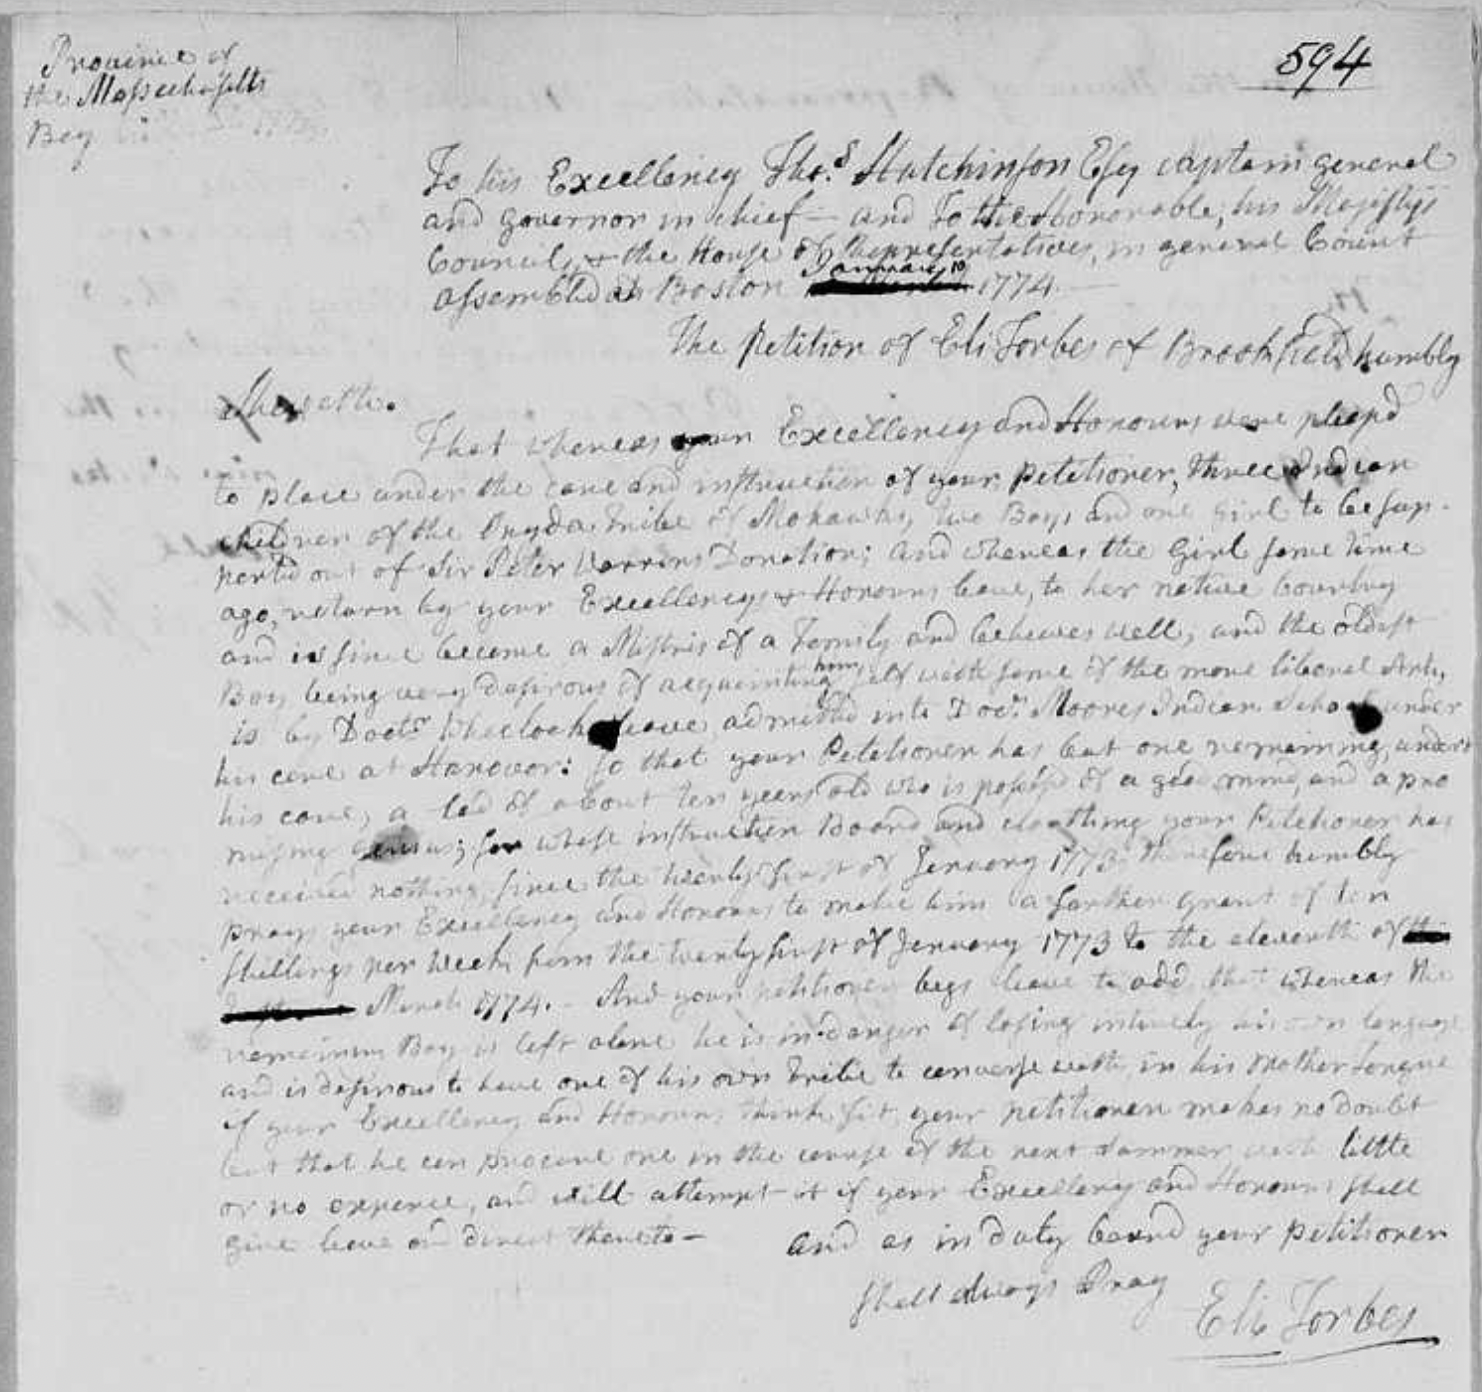 594
Province of
the Massachusetts
Bay
To his Excellency Tho.s Hutchinson Esq captain general
and governor in chief — and To the Honorable, his Majestys
Council, & the House of Representatives, in general Court
assembled at Boston January 10 1774 —
The Petition of Eli Forbes of Brookfield humbly
Sheweth.
That whereas your Excellency and Honours were pleasd
to place under the care and instruction of your petitioner, three Indian
children of the Onyda Tribe of Mohawks, two Boys and one Girl to be sup-
ported out of Sir Peter Warrens Donation; and whereas the Girl some time
ago, return by your Excellencys & Honours leave, to her native Country
and is since become a Mistris of a Family and behaves well, and the oldest
Boy being very desirous of acquainting him self with some of the more liberal Arts,
is by Doctr Wheelocks leave admitted into Docr. Moores Indian School under
his care at Hanover: so that your Petitioner has but one remaining, under
his care, a lad of about ten years old who is possess'd of a good mind, and a pro
missing genius; for whose instruction Board and cloathing your Petitioner has
received nothing, since the twenty first of January 1773 therefore humbly
prays your Excellency and Honours to make him a farther grant of ten
shillings per week from the twenty first of January 1773 to the eleventh of
March 1774. — And your petitioner begs leave to add, that whereas the
remaining Boy is left alone he is in danger of losing intirely his own language
and is desirous to have one of his own Tribe to converse with, in his mother tongue
if your Excellency and Honours think fit, your petitioner makes no doubt
but that he can procure one in the course of the next summer with little
or no expence, and will attempt it if your Excellency and Honours shall
give leave and direct thereto —
and as in duty bound your petitioner
shall always Pray
Eli Forbes